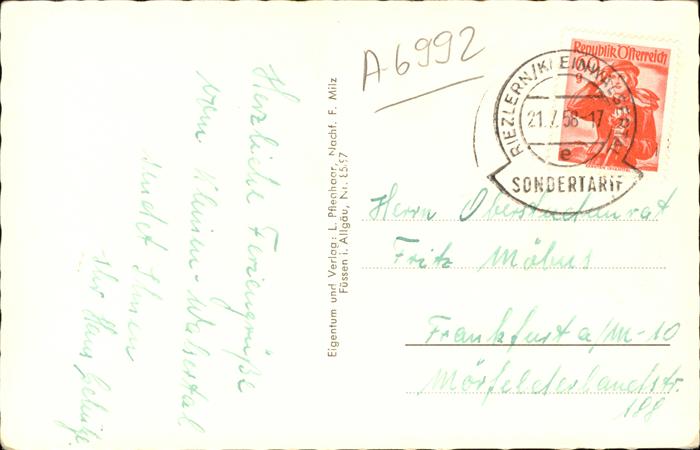 A 6992
Republik Österreich
RIEZLERN/KLEINWALSERTAL
21.7.58-17
e
SONDERTARIF
Herzliche Feriengrüße
vom Kleinen-Walsertal
sendet Ihnen
Ihr Hans
Eigentum und Verlag: L. Pflenhaar, Nachf. F. Milz
Füssen i. Allgäu, Nr.
Herrn Oberstudienrat
Fritz Möbus
Frankfurt a/M-10
Mörfelderlandstr.
188